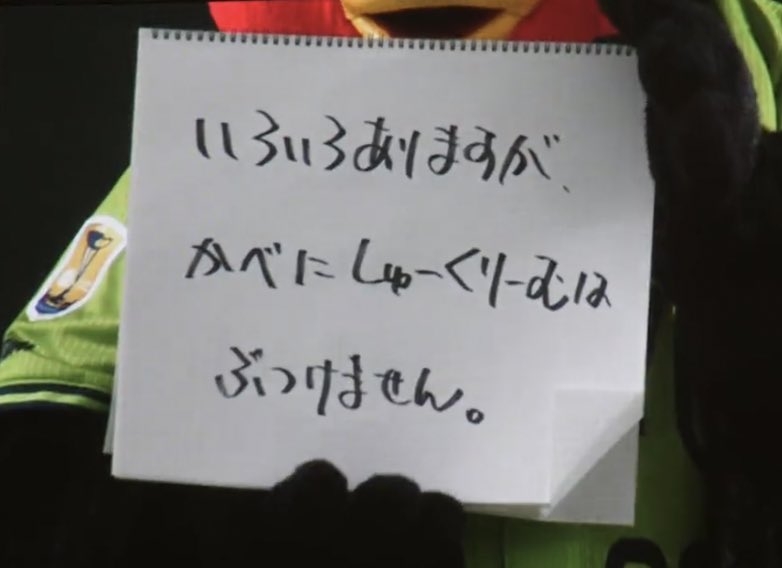 いろいろありますが、
かべにしゅーくりーむは
ぶつけません。